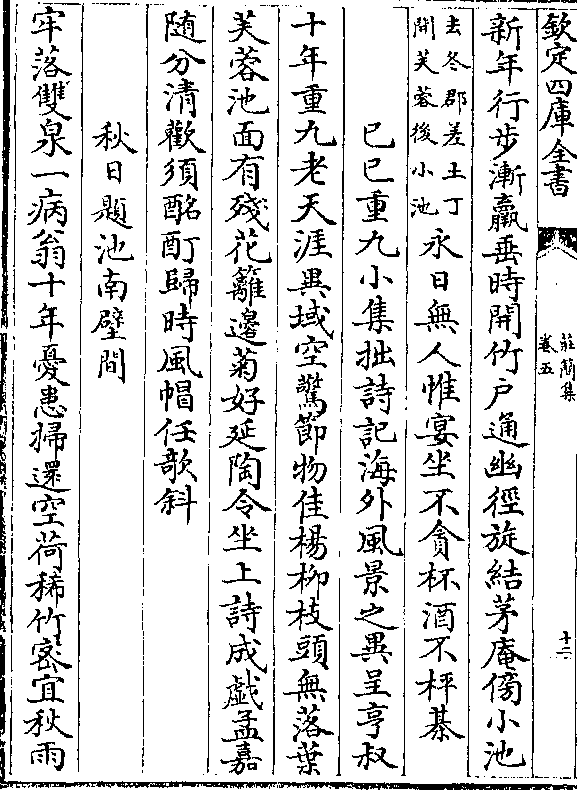 欽定四庫全書
莊簡集
卷五
十二
新年行步漸羸垂時開竹戶通幽徑旋結茅庵傍小池
去冬郡差土丁
開芙蓉後小池
永日無人惟宴坐不貪杯酒不枰棊
巳巳重九小集拙詩記海外風景之異呈亨叔
十年重九老天涯異域空驚節物佳楊柳枝頭無落葉
芙蓉池面有殘花籬邊菊好延陶令坐上詩成戲孟嘉
隨分清歡須酩酊歸時風帽任欹斜
秋日題池南壁間
牢落雙泉一病翁十年憂患掃還空荷稀竹密宜秋雨